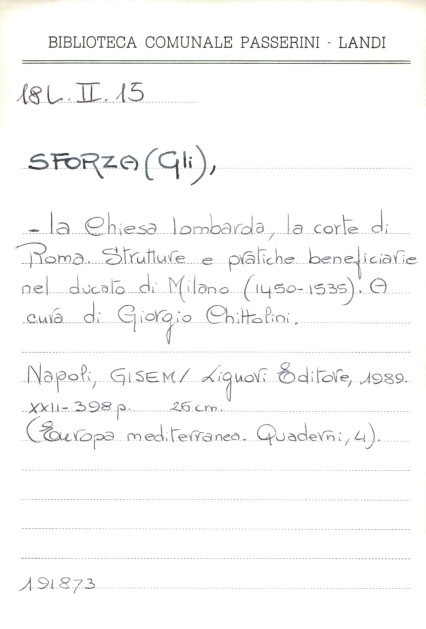 BIBLIOTECA COMUNALE PASSERINI - LANDI
18L. II. 15
SFORZA (Gli),
- la Chiesa lombarda, la corte di
Roma. Strutture e pratiche beneficiarie
nel ducato di Milano (1450-1535). A
cura di Giorgio Chittolini.
Napoli, GISEM/ Liguori Editore, 1989.
XXII-398 p. 26 cm.
(Europa mediterranea. Quaderni, 4).
191873